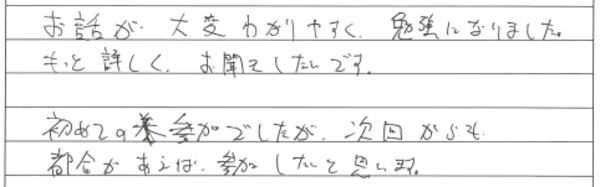 お話が、大変わかりやすく、勉強になりました。
もっと詳しく、お聞きしたいです。
初めての参加でしたが、次回からも
都合があえば、参加したいと思います。